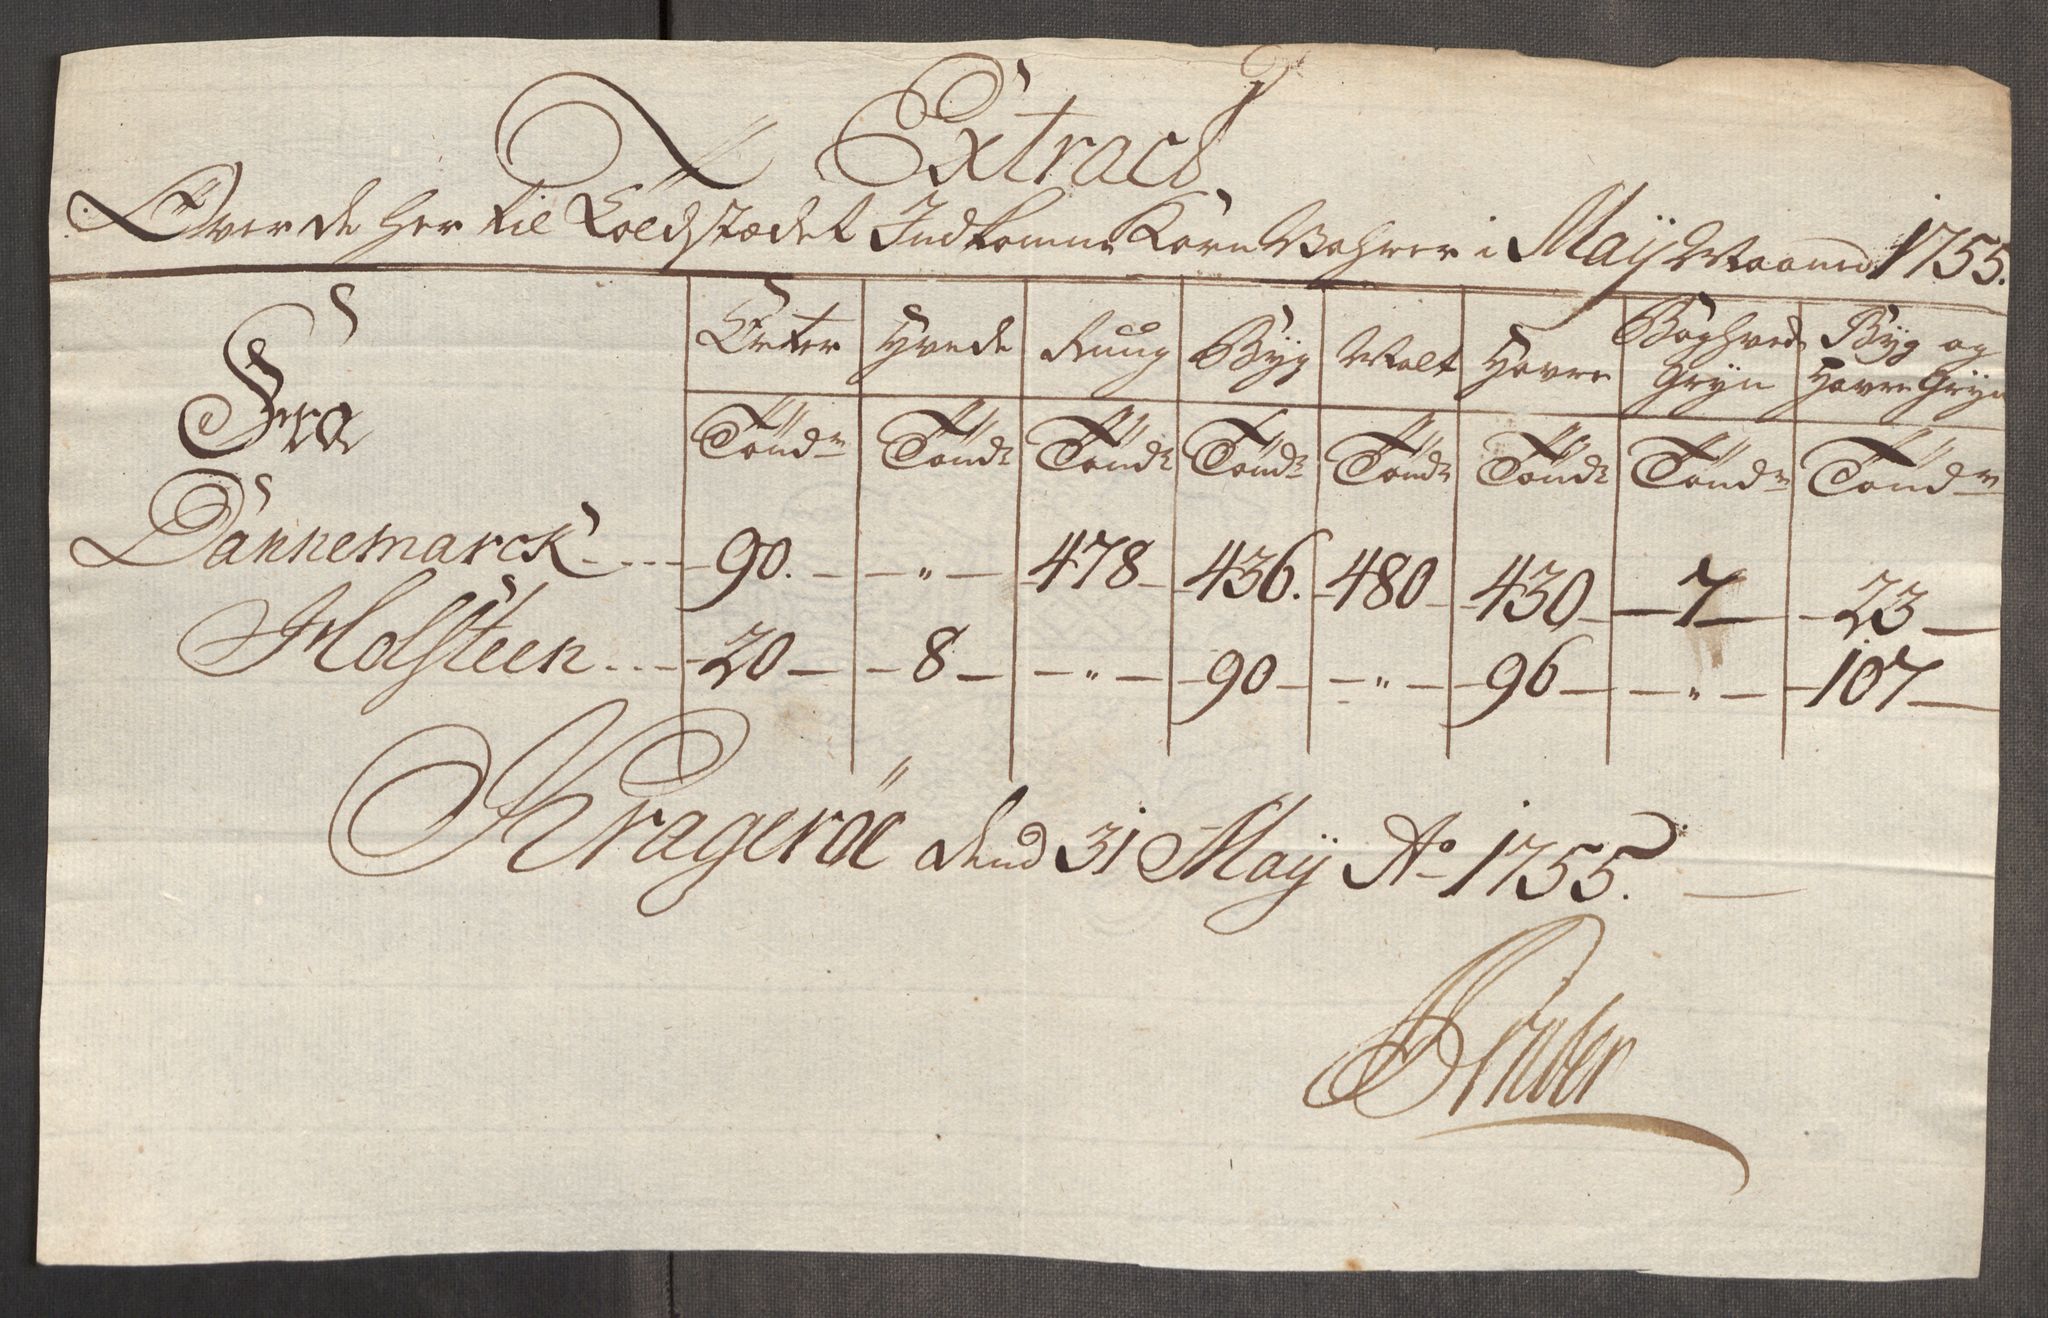 Extract
Over de her til Toldstædet Indkomne Korn Vahrer i Maÿ Maaned 1755.
Fra
Erter Hvede Rug Byg Malt Havre Boghvede Gryn Byg og Havre Gryn
Tönd Tönd Tönd Tönd Tönd Tönd Tönd Tönd
Dannemarck 90. " 478 436. 480 430 7 23
Holsteen 20 8 " 90 " 96 " 107
Krageröe dend 31 Maÿ Ao 1755.